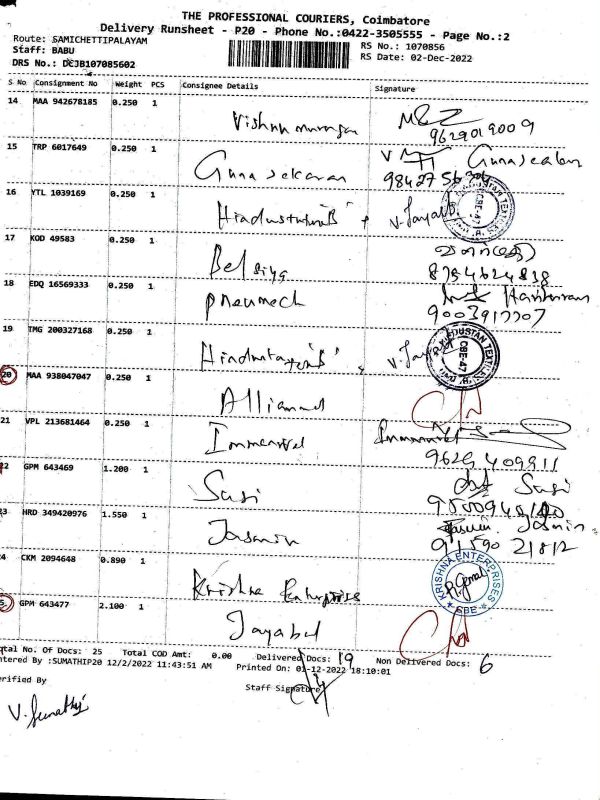 THE PROFESSIONAL COURIERS, Coimbatore
Delivery Runsheet - P20 - Phone No.:0422-3505555 - Page No.:2
Route: SAMICHETTIPALAYAM
RS No.: 1070856
Staff: BABU
RS Date: 02-Dec-2022
DRS No.: DEJB107085602
S No Consignment No Weight PCS Consignee Details Signature
14 MAA 942678185 0.250 1
Vishnu murugan
9629019009
15 TRP 6017649 0.250 1
Gunasekaran
16 YTL 1039169 0.250 1
V. Jayal
HINDUSTAN TEXTILES CBE-47
17 KOD 49583 0.250 1
Belsiya
8754624838
18 EDQ 16569333 0.250 1
Pneumech
Hariharan
19 TMG 200327168 0.250 1
HINDUSTAN TEXTILES CBE-47
20 MAA 938047047 0.250 1
21 VPL 213681464 0.250 1
Immanuel
9629409911
22 GPM 643469 1.200 1
Sasi
Sasi
23 HRD 349420976 1.550 1
Jasmin
Jasmin
24 CKM 2094648 0.890 1
Krishna Enterprises
KRISHNA ENTERPRISES CBE
25 GPM 643477 2.100 1
Jayabal
otal No. Of Docs: 25 Total COD Amt: 0.00 Delivered Docs: 19 Non Delivered Docs: 6
ntered By :SUMATHIP20 12/2/2022 11:43:51 AM Printed On: 01-12-2022 18:10:01
erified By
Staff Signature
V. Sumathi